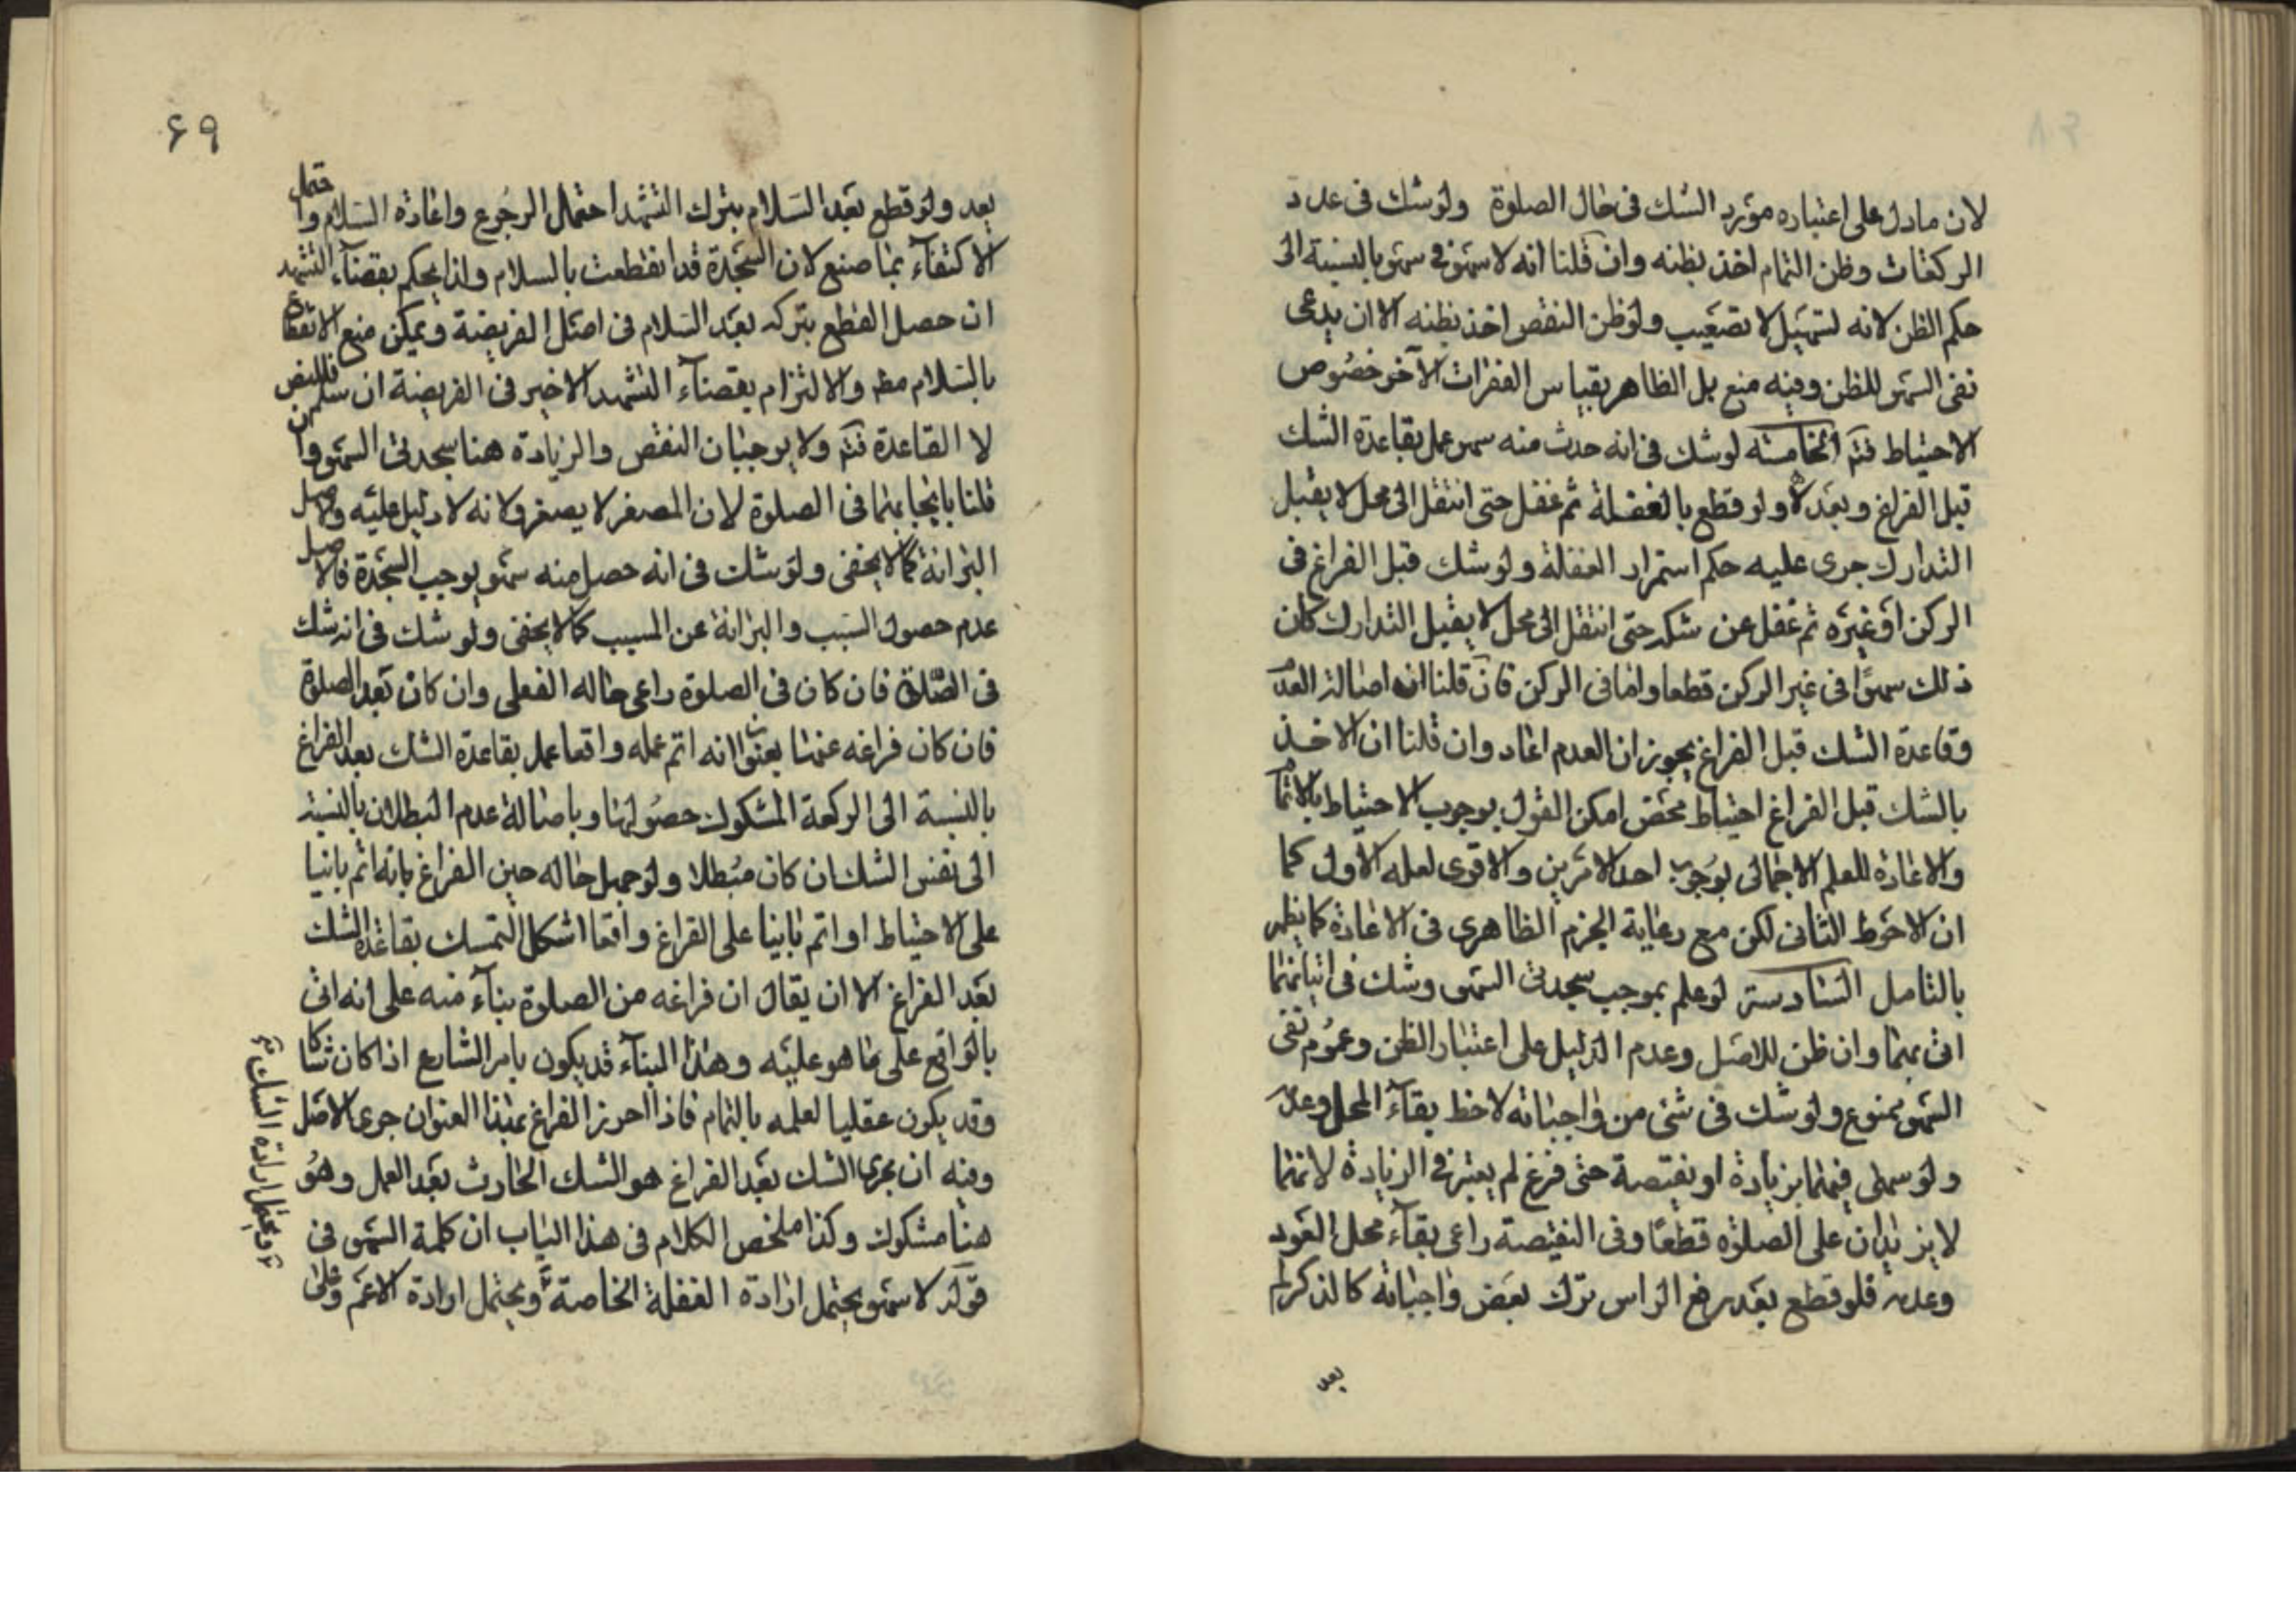 لان مادل على اعتباره مورد الشك فى حال الصلوة ولو شك فى عدد
الركعات وظن التمام اخذ بظنه وان قلنا انه لا سهو فى سهو بالنسبة الى
حكم الظن لانه لتسهيل لا تصعيب ولو ظن النقص اخذ بظنه الا ان يدعى
نفى السهو للظن وفيه منع بل الظاهر بقياس الفقرات الآخر خصوص
الاحتياط فتم الخامسة لو شك فى انه حدث منه سهو عمل بقاعدة الشك
قبل الفراغ وبعده ولو قطع بالغفلة ثم غفل حتى انتقل الى محل لا يقبل
التدارك جرى عليه حكم استمرار الغفلة ولو شك قبل الفراغ فى
الركن او غيره ثم غفل عن شكه حتى انتقل الى محل لا يقبل التدارك كان
ذلك سهوا فى غير الركن قطعا واما فى الركن فان قلنا ان اصالة العدم
وقاعدة الشك قبل الفراغ يحرزان العدم اعاد وان قلنا ان الاخذ
بالشك قبل الفراغ احتياط محض امكن القول بوجوب الاحتياط بالاتمام
والاعادة للعلم الاجمالى بوجوب احد الامرين والاقوى لعله الاول كما
ان الاحوط الثانى لكن مع رعاية الجزم الظاهرى فى الاعادة كما يظهر
بالتامل السادسة لو علم بموجب سجدتى السهو وشك فى اتيانهما
اتى بهما وان ظن للاصل وعدم الدليل على اعتبار الظن وعموم نفى
السهو ممنوع ولو شك فى شئ من واجباته لاحظ بقاء المحل وعدمه
ولو سهى فيهما بزيادة او نقيصة حتى فرغ لم يعتبر فى الزيادة لانهما
لا يزيدان على الصلوة قطعا وفى النقيصة راعى بقاء محل العود
وعدمه فلو قطع بعد رفع الراس ترك بعض واجباته كالذكر لم
بعد
٦٩
يعد ولو قطع بعد السلام بترك التشهد احتمل الرجوع واعادة السلام واحتمل
الاكتفاء بما صنع لان السجدة قد انقطعت بالسلام ولذا يحكم بقضاء التشهد
ان حصل القطع بتركه بعد السلام فى اصل الفريضة ويمكن منع الانقطاع
بالسلام مط والالتزام بقضاء التشهد الاخير فى الفريضة ان سلم فللنص
لا القاعدة فتم ولا يوجبان النقص والزيادة هنا سجدتى السهو وان
قلنا بايجابهما فى الصلوة لان المصغر لا يصغر ولانه لا دليل عليه والاصل
البرائة كما لا يخفى ولو شك فى انه حصل منه سهو يوجب السجدة فالاصل
عدم حصول السبب والبرائة عن المسبب كما لا يخفى ولو شك فى انه شك
فى الصلوة فان كان فى الصلوة راعى حاله الفعلى وان كان بعد الصلوة
فان كان فراغه عنها بعنوان انه اتم عمله واقعا عمل بقاعدة الشك بعد الفراغ
بالنسبة الى الركعة المشكوك حصولها وباصالة عدم البطلان بالنسبة
الى نفس الشك ان كان مبطلا ولو جهل حاله حين الفراغ بانه اتم بانيا
على الاحتياط او اتم بانيا على الفراغ واقعا اشكل التمسك بقاعدة الشك
بعد الفراغ الا ان يقال ان فراغه من الصلوة بناء منه على انه اتى
بالواقع على ما هو عليه وهذا البناء قد يكون بامر الشارع اذا كان شاكا
وقد يكون عقليا لعلمه بالتمام فاذا احرز الفراغ بهذا العنوان جرى الاصل
وفيه ان مجرى الشك بعد الفراغ هو الشك الحادث بعد العمل وهو
هنا مشكوك وكذا ملخص الكلام فى هذا الباب ان كلمة السهو فى
قوله لا سهو يحتمل ارادة الغفلة الخاصة ويحتمل ارادة الاعم وعلى
ويحتمل ارادة الشك